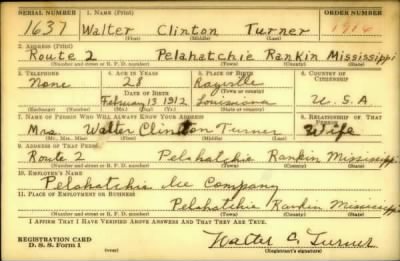 SERIAL NUMBER 1. NAME (Print) ORDER NUMBER
1637 Walter Clinton Turner 1916
(First) (Middle) (Last)
2. ADDRESS (Print)
Route 2 Pelahatchie Rankin Mississippi
(Number and street or R. F. D. number) (Town) (County) (State)
3. TELEPHONE 4. AGE IN YEARS 5. PLACE OF BIRTH 6. COUNTRY OF CITIZENSHIP
None 28 Rayville
DATE OF BIRTH (Town or county)
February 13 1912 Louisiana U.S.A
(Exchange) (Number) (Mo.) (Day) (Yr.) (State or country)
7. NAME OF PERSON WHO WILL ALWAYS KNOW YOUR ADDRESS 8. RELATIONSHIP OF THAT PERSON
Mrs Walter Clinton Turner Wife
(Mr., Mrs., Miss) (First) (Middle) (Last)
9. ADDRESS OF THAT PERSON
Route 2 Pelahatchie Rankin Mississippi
(Number and street or R. F. D. number) (Town) (County) (State)
10. EMPLOYER'S NAME
Pelahatchie Ice Company
11. PLACE OF EMPLOYMENT OR BUSINESS
Pelahatchie Rankin Mississippi
(Number and street or R. F. D. number) (Town) (County) (State)
I AFFIRM THAT I HAVE VERIFIED ABOVE ANSWERS AND THAT THEY ARE TRUE.
REGISTRATION CARD Walter C. Turner
D. S. S. Form 1 (Registrant's signature)